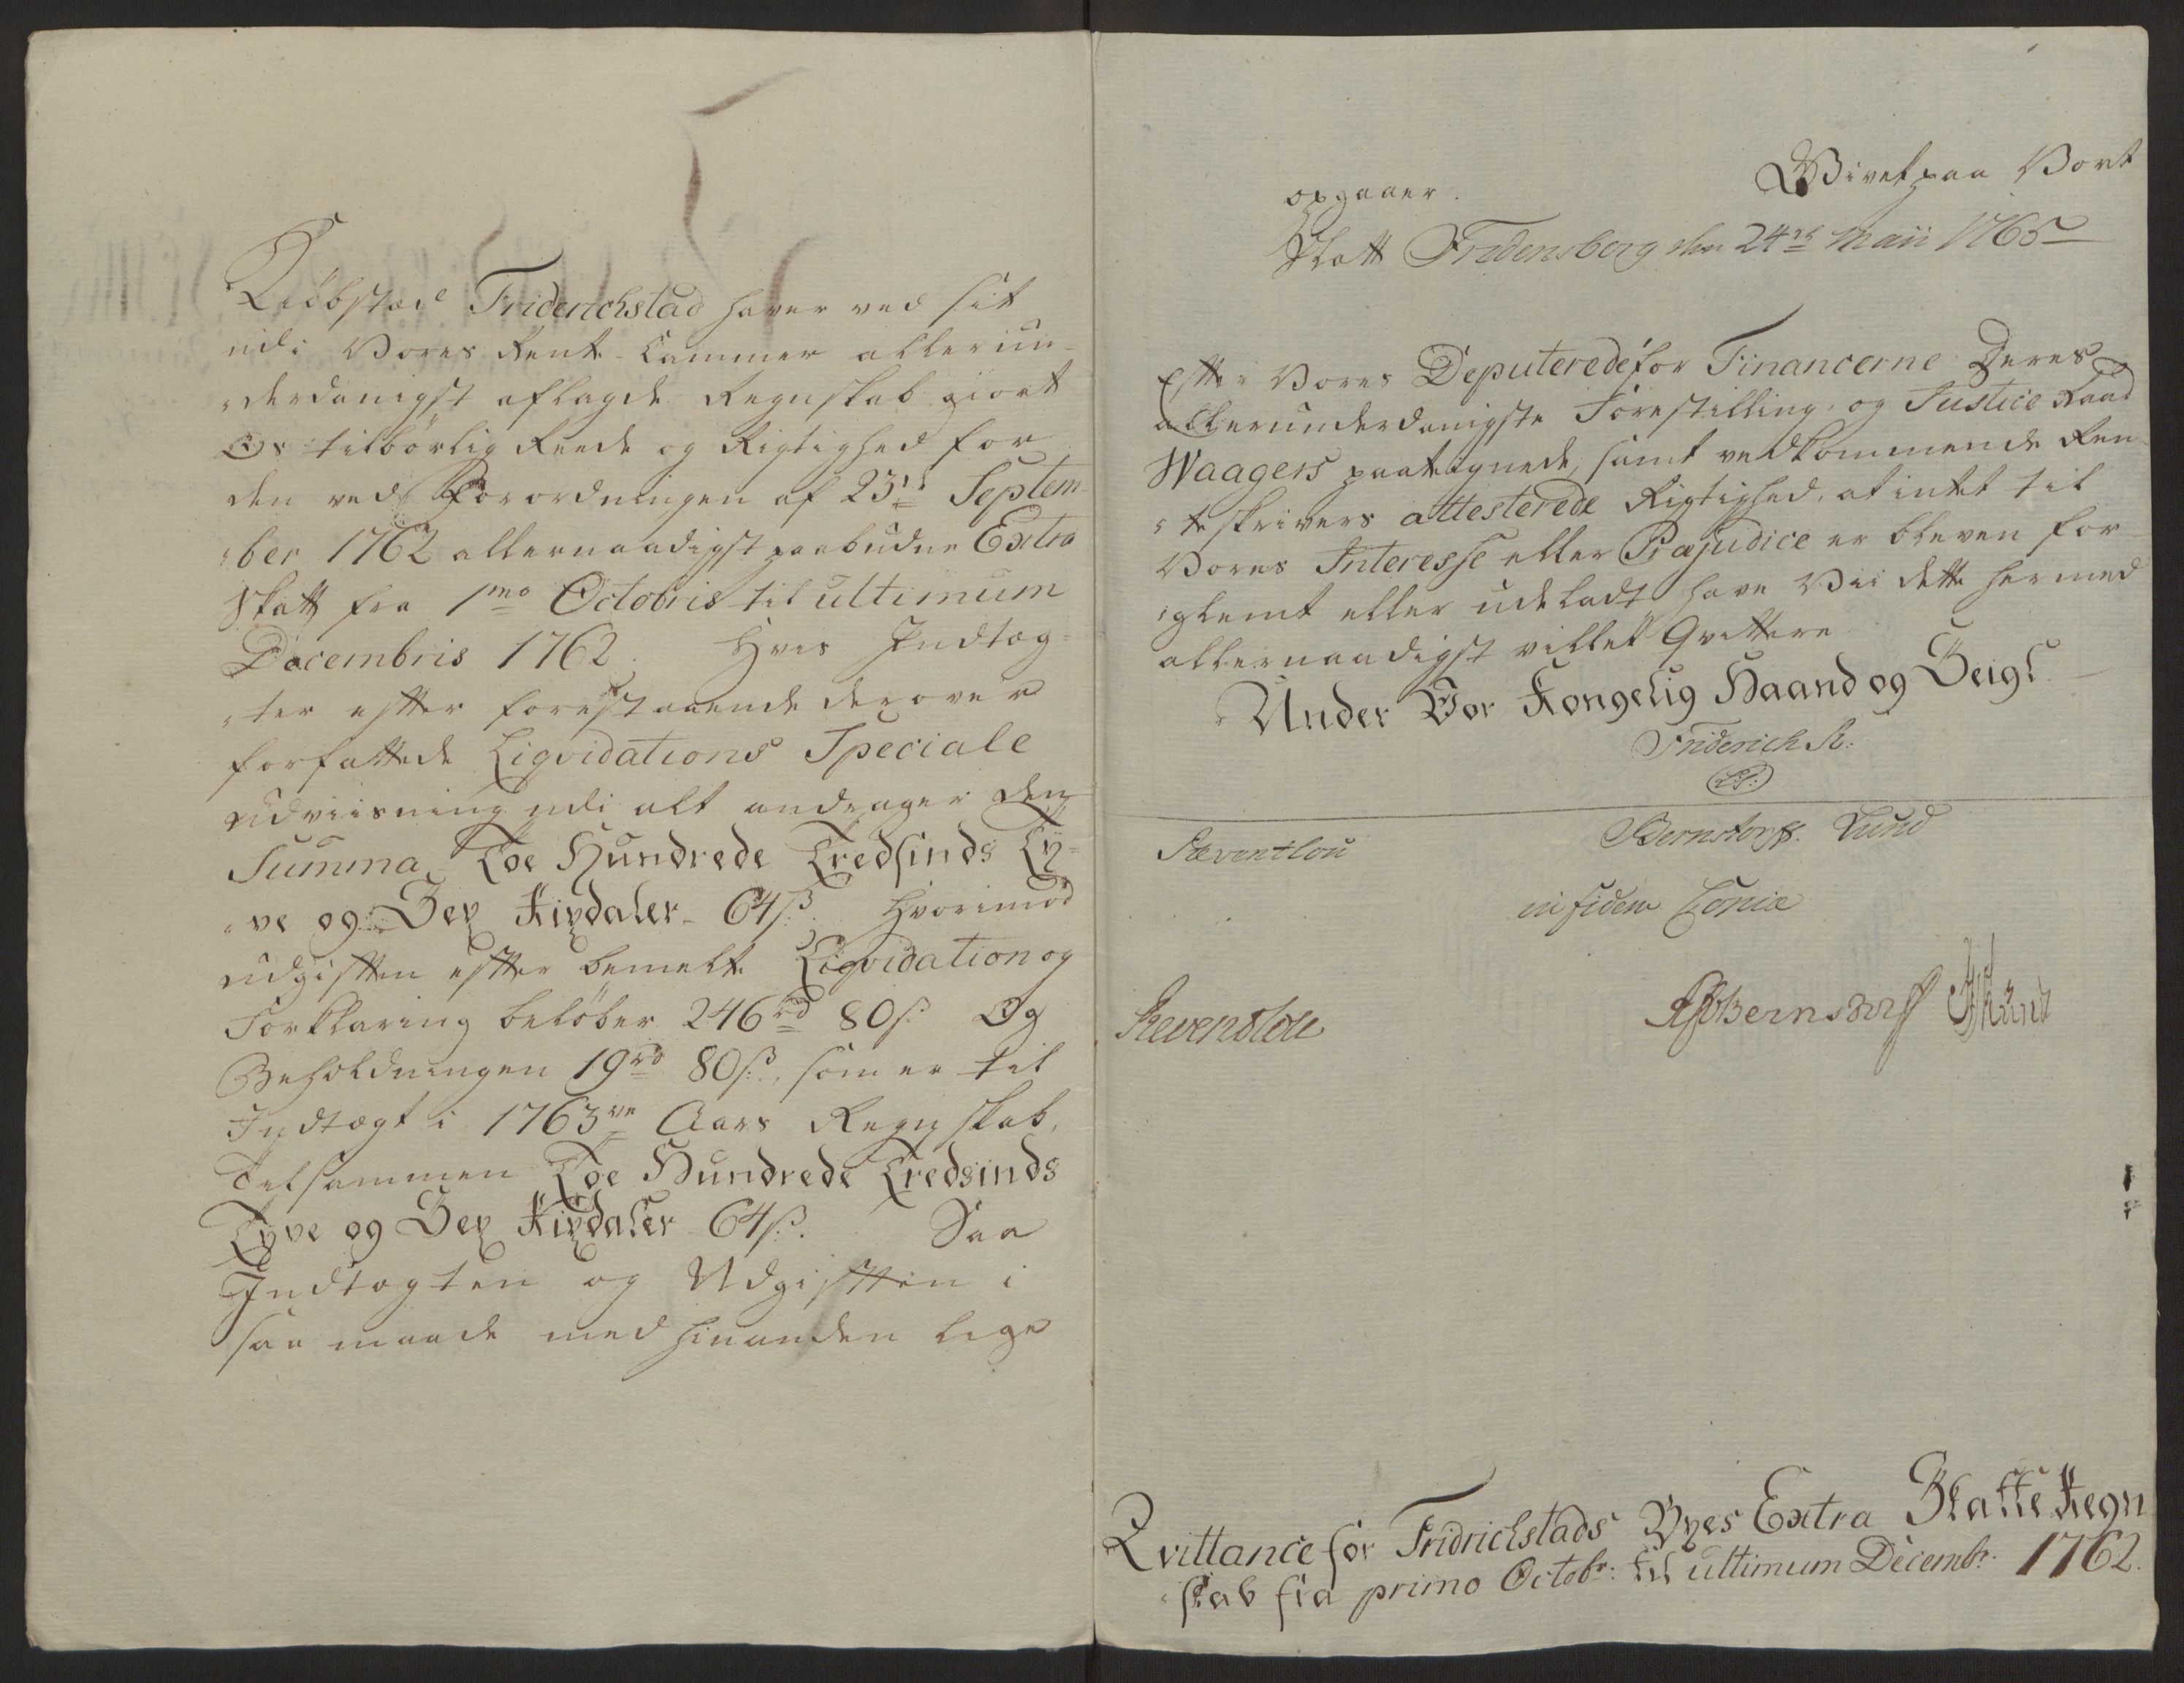 Kiöbstad Friderichstad haver ved sit
udi Vores Rente-Cammer allerun-
„derdanigst aflagde Regnskab giort
Os tilbörlig Reede og Rigtighed for
den ved Forordningen af 23de Septem-
„ber 1762 allernaadigst paabudne Extra
Skatt fra 1mo Octobris til ultimum
Decembris 1762. Hvis Indtæg-
„ter efter forestaaende derover
forfattede Liqvidations Speciale
udviisning udi alt andrager den
Summa Toe Hundrede Tredsinds Ty-
„ve og Sex Rixdaler 64 ß. Hvorimod
udgiften efter bemelte Liqvidation og
Forklaring belöber 246 rd 80 ß. Og
Beholdningen 19 rd 80 ß., som er til
Indtægt i 1763ve Aars Regnskab,
Tilsammen Toe Hundrede Tredsinds
Tyve og Sex Rixdaler 64 ß. Saa
Indtægten og Udgiften i
saa maade med hinanden lige
opgaaer. Givet paa Vort
Slott Fredensborg den 24de Maii 1765
Efter Vores Deputerede for Financerne Deres
allerunderdanigste Forestilling, og Justice Raad
Waagers paategnede, samt vedkommende Ren-
„teskrivers attesterede Rigtighed, at intet til
Vores Interesse eller Præjudice er bleven for-
„glemt eller udeladt have Vii dette hermed
allernaadigst villet Qvittere
Under Vor Kongelig Haand og Seigl.
Friderich R:
(L.S.)
Reventlou Bernstorff. Lund
in fidem Copiæ
Reventlou Bernstorff Lund
Qvittance for Fridrichstads Byes Extra Skatte Regn
„skab fra primo Octobr: til ultimum Decembr. 1762.